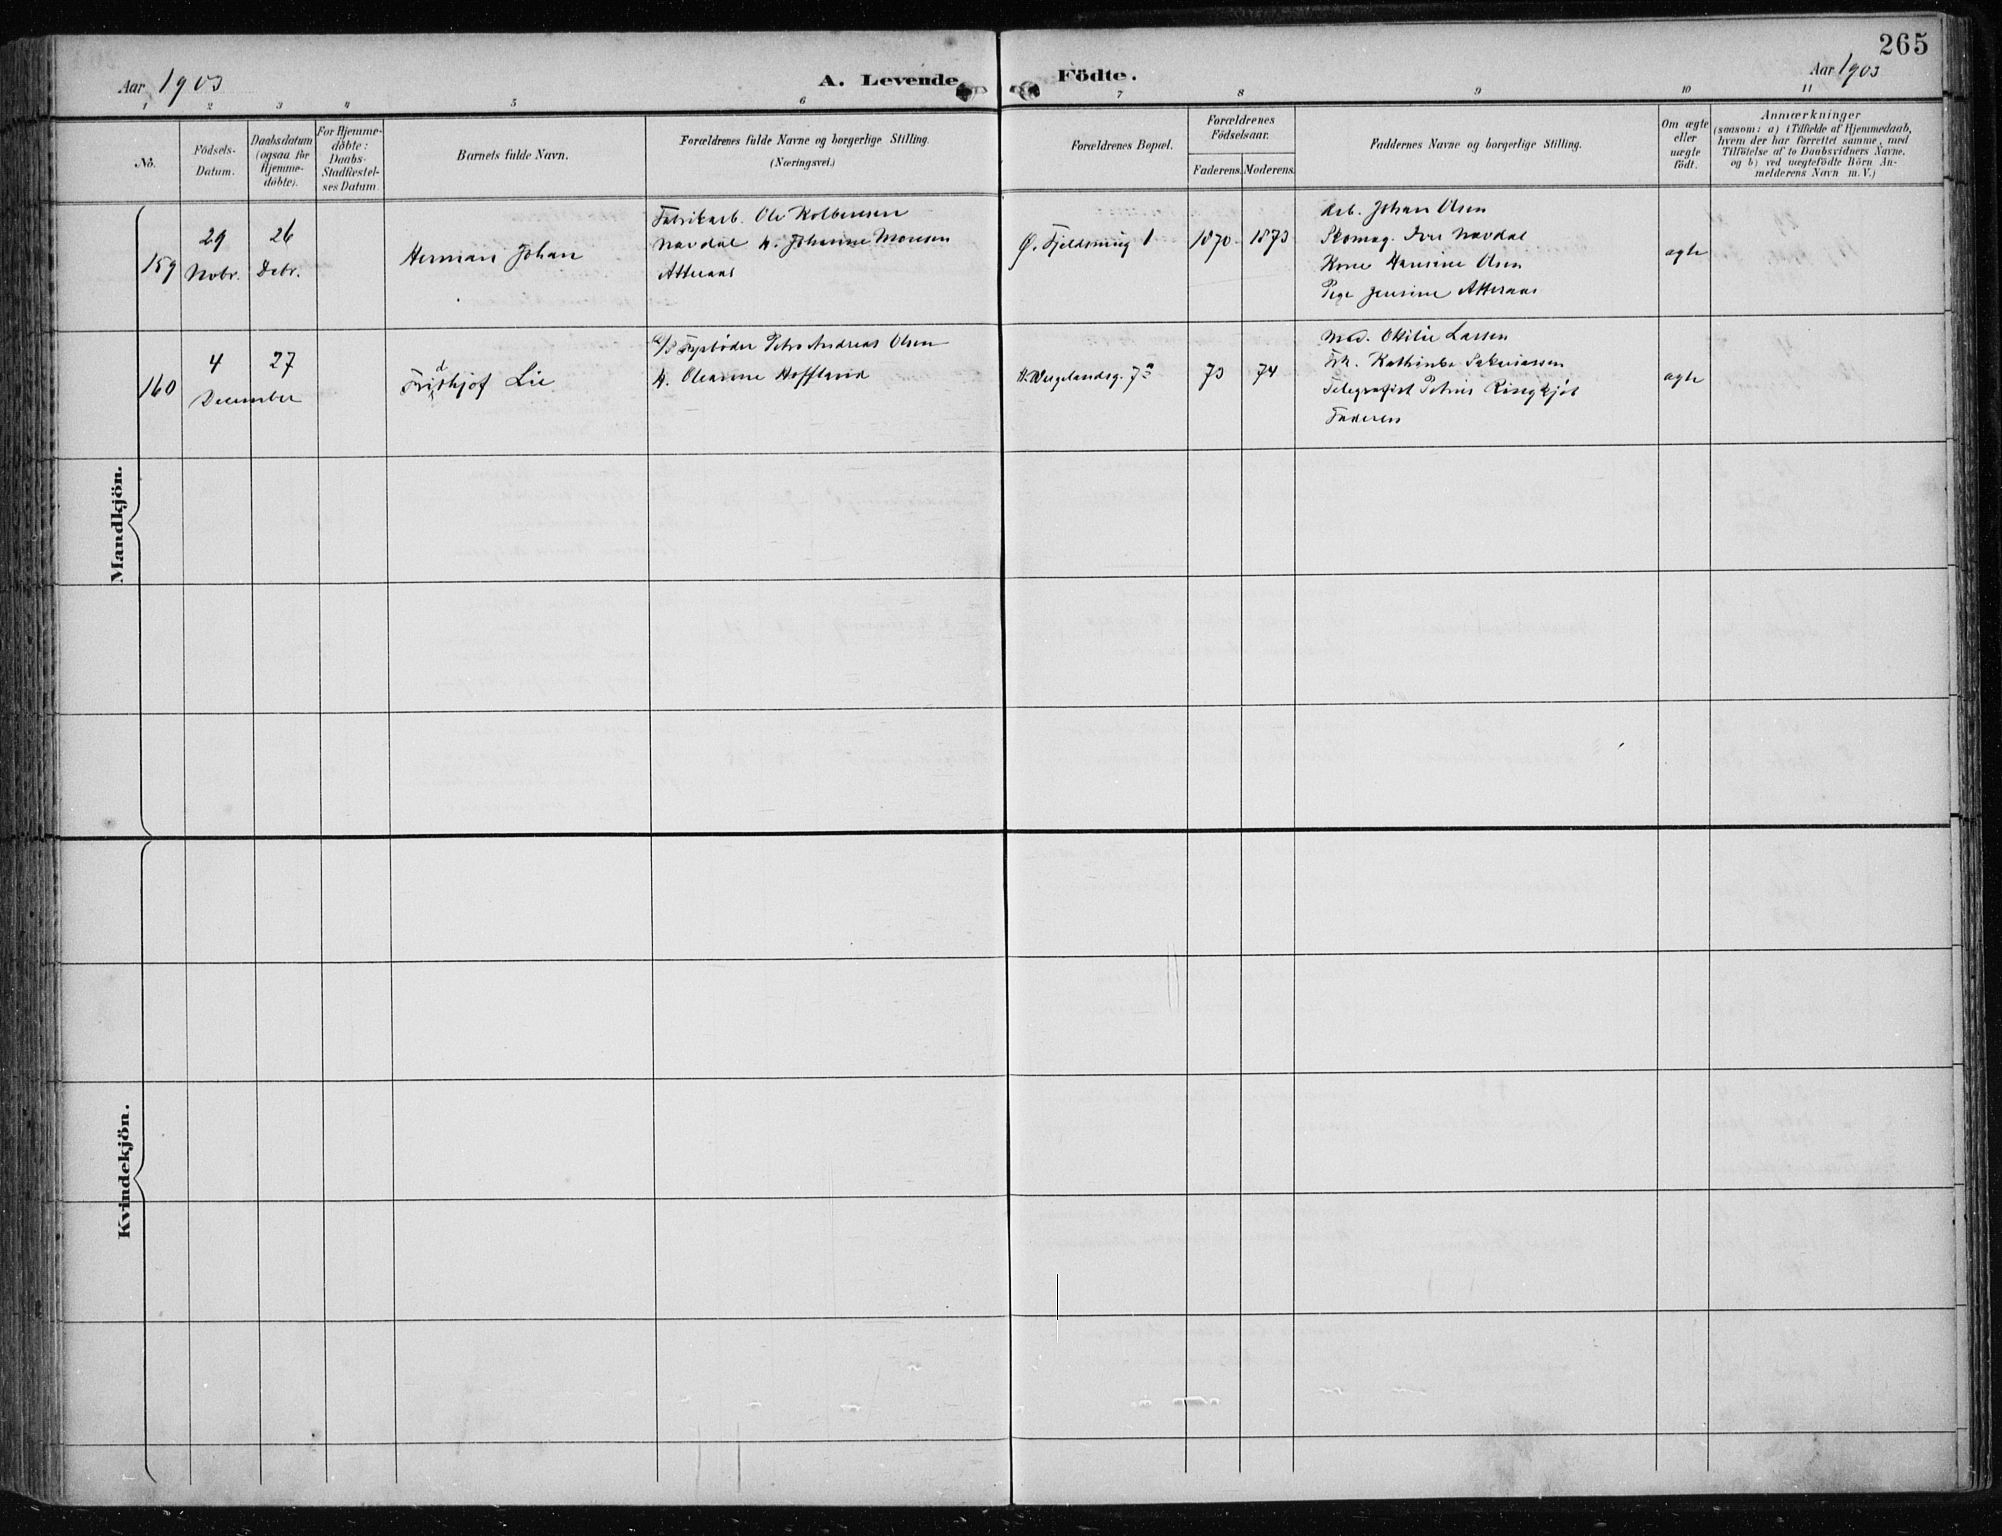 265
Aar 1903
A. Levende Födte.
Aar 1903
1 2 3 4 5 6 7 8 9 10 11
No.
Födsels-
Datum.
Daabsdatum
(ogsaa for
Hjemme-
döbte).
For Hjemme-
döbte:
Daabs-
Stadfæstel-
ses Datum.
Barnets fulde Navn.
Forældrenes fulde Navne og borgerlige Stilling.
(Næringsvei.)
Forældrenes Bopæl.
Forældrenes
Födselsaar.
Faderens. Moderens.
Faddernes Navne og borgerlige Stilling.
Om ægte
eller
uægte
födt.
Anmærkninger
(saasom: a) i Tilfælde af Hjemmedaab,
hvem der har forrettet samme, med
Tilföielse af to Daabsvidners Navne.
og b) ved uægtefödte Börn An-
melderens Navn m. V.)
Mandkjön.
159
29
Nobr.
26
Debr.
Herman Johan
Fabrikarb. Ole Kolbensen
Navdal H. Johanne Monsen
Atteraas
Ø. Fjeldsmug 1
1870
1873
Arb. Johan Olsen
Skomag. Iver Navdal
Kone Hansine Olsen
Pige Jensine Atteraas
ægte
160
4
27
December
Fridthjof Lie
Typtøder Petro Andreas Olsen
H. Oleanne Hoffland
H. Wergelandsg. 7
73
74
Mad. Ottilie Larsen
Frk. Kathinka Sakariassen
Telegrafist Petrus Ringkjøb
Faderen
ægte
Kvindekjön.